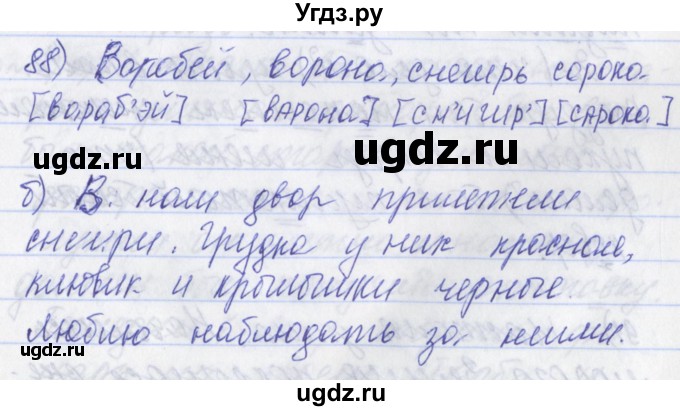 Угдз.ру
88) Воробей, ворона, снегирь сорока
[вараб'эй] [варона] [сн'игир'] [сарока]
ugdz.ru ugdz.ru
б) В наш двор прилетели
снегири. Грудка у них красная,
клювик и крылышки черные.
Люблю наблюдать за ними.
ugdz.ru ugdz.ru
ugdz.ru